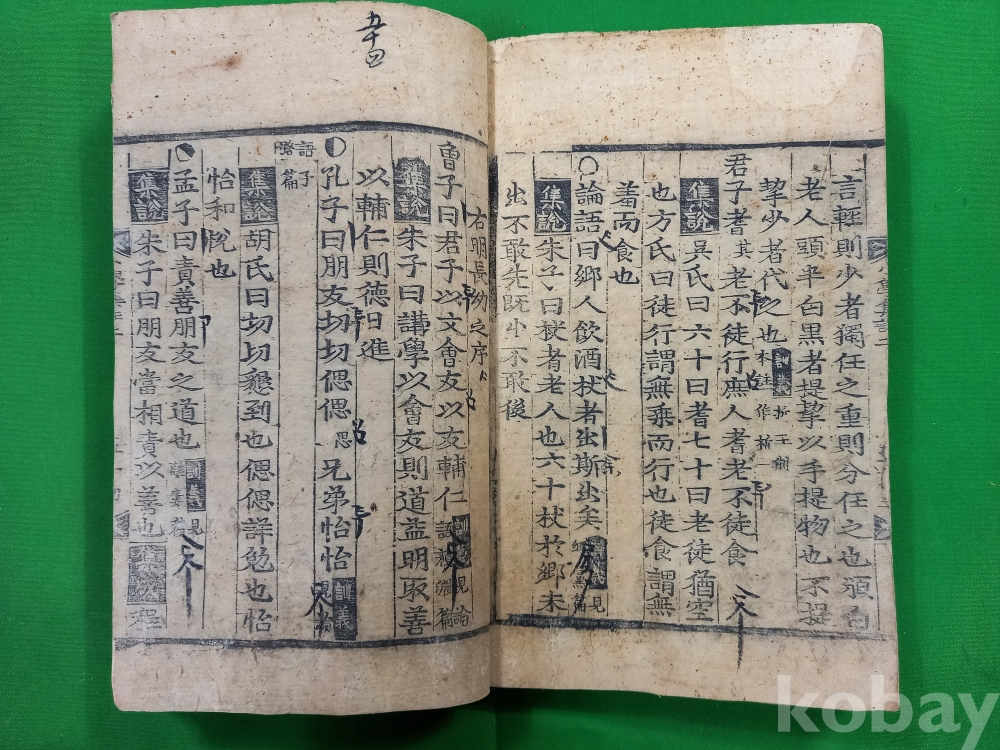 言輕則少者獨任之重則分任之也頒白
老人頭半白黑者提挈以手提物也不提
挈少者代之也
君子耆老不徒行庶人耆老不徒食
集說 吳氏曰六十曰耆七十曰老徒猶空
也方氏曰徒行謂無乘而行也徒食謂無
羞而食也
○論語曰鄕人飮酒杖者出斯出矣
集說 朱子曰杖者老人也六十杖於鄕未
出不敢先旣出不敢後
右明長幼之序
曾子曰君子以文會友以友輔仁
集說 朱子曰講學以會友則道益明取善
以輔仁則德日進
孔子曰朋友切切偲偲兄弟怡怡 訓義 見論
語子路篇
集說 胡氏曰切切懇到也偲偲詳勉也怡
怡和悅也
孟子曰責善朋友之道也 訓義
集說 朱子曰朋友當相責以善也 集成 程
五十四
kobay